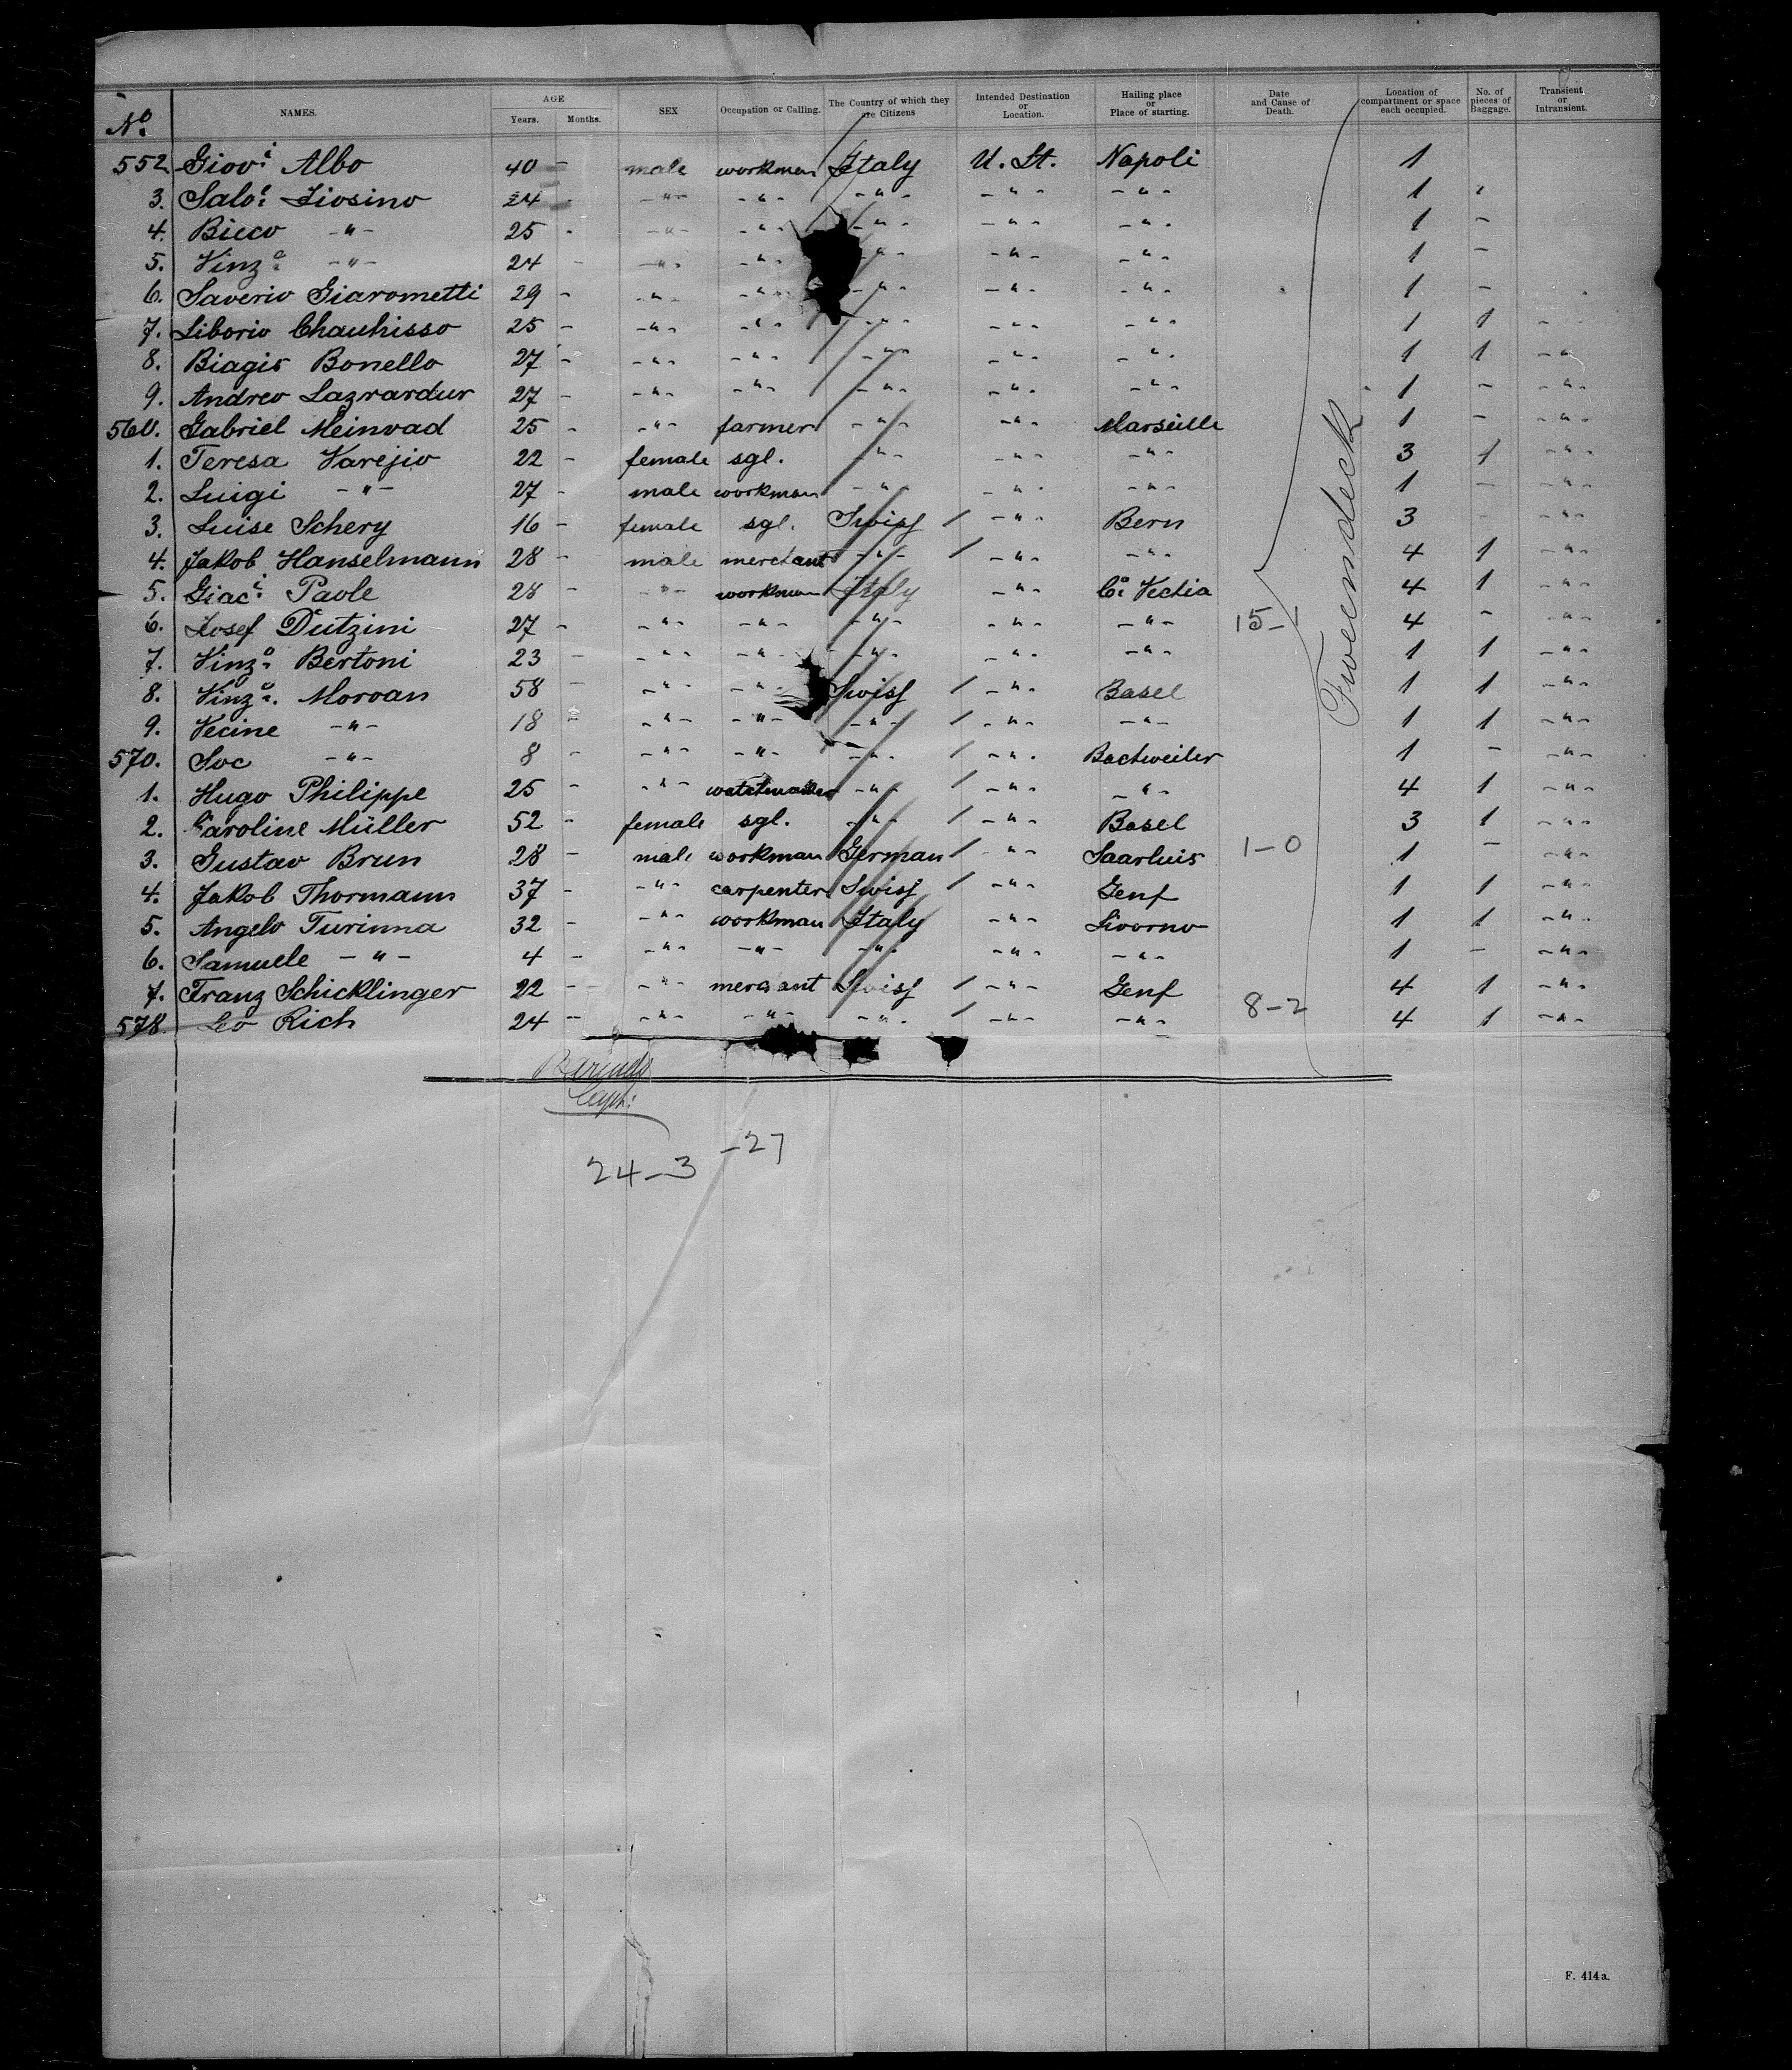 No. NAMES. AGE Years. Months. SEX Occupation or Calling. The Country of which they are Citizens Intended Destination or Location. Hailing place or Place of starting. Date and Cause of Death. Location of compartment or space each occupied. No. of pieces of Baggage. Transient or Intransient.
552 Giov.i Albo 40 - male workman Italy U. St. Napoli 1
3. Salo. Liosino 24 - -"- -"- -"- -"- -"- 1
4. Bieco -"- 25 - -"- -"- -"- -"- -"- 1 -
5. Vinz.o -"- 24 - -"- -"- -"- -"- -"- 1 -
6. Saverio Giarometti 29 - -"- -"- -"- -"- -"- 1 -
7. Liborio Chauhisso 25 - -"- -"- -"- -"- -"- 1 1 -
8. Biagio Bonello 27 - -"- -"- -"- -"- -"- 1 1 -"-
9. Andreo Lazrardur 27 - -"- -"- -"- -"- -"- 1 - -"-
560. Gabriel Meinvad 25 - -"- farmer -"- -"- Marseille 1 - -"-
1. Teresa Varejio 22 - female sgl. -"- -"- -"- 3 1 -"-
2. Luigi -"- 27 - male workman -"- -"- -"- 1 - -"-
3. Luise Schery 16 - female sgl. Swiss / -"- Bern 3 - -"-
4. Jakob Hanselmann 28 - male merchant -"- / -"- -"- 4 1 -"-
5. Giac.i Paole 28 - -"- workman Italy -"- C.a Vechia 4 1 -"-
6. Josef Dutzini 27 - -"- -"- -"- -"- -"- 15-1 4 - -"-
7. Vinz.o Bertoni 23 - -"- -"- -"- -"- -"- 1 1 -"-
8. Vinz.o Morvan 58 - -"- -"- Swiss / -"- Basel 1 1 -"-
9. Vecine -"- 18 - -"- -"- -"- / -"- -"- 1 1 -"-
570. Soc -"- 8 - -"- -"- -"- / -"- Bachweiler 1 - -"-
1. Hugo Philippe 25 - -"- watchmaker -"- / -"- -"- 4 1 -"-
2. Caroline Müller 52 - female sgl. -"- / -"- Basel 3 1 -"-
3. Gustav Brun 28 - male workman German / -"- Saarluis 1-0 1 - -"-
4. Jakob Thormann 37 - -"- carpenter Swiss / -"- Genf 1 1 -"-
5. Angelo Turinna 32 - -"- workman Italy -"- Livorno 1 1 -"-
6. Samuele -"- 4 - -"- -"- -"- -"- -"- 1 - -"-
7. Franz Schicklinger 22 - -"- merchant Swiss / -"- Genf 4 1 -"-
578. Leo Rich 24 - -"- -"- -"- / -"- -"- 8-2 4 1 -"-
Twendeck
Capt:
24-3 -27
F. 414a.